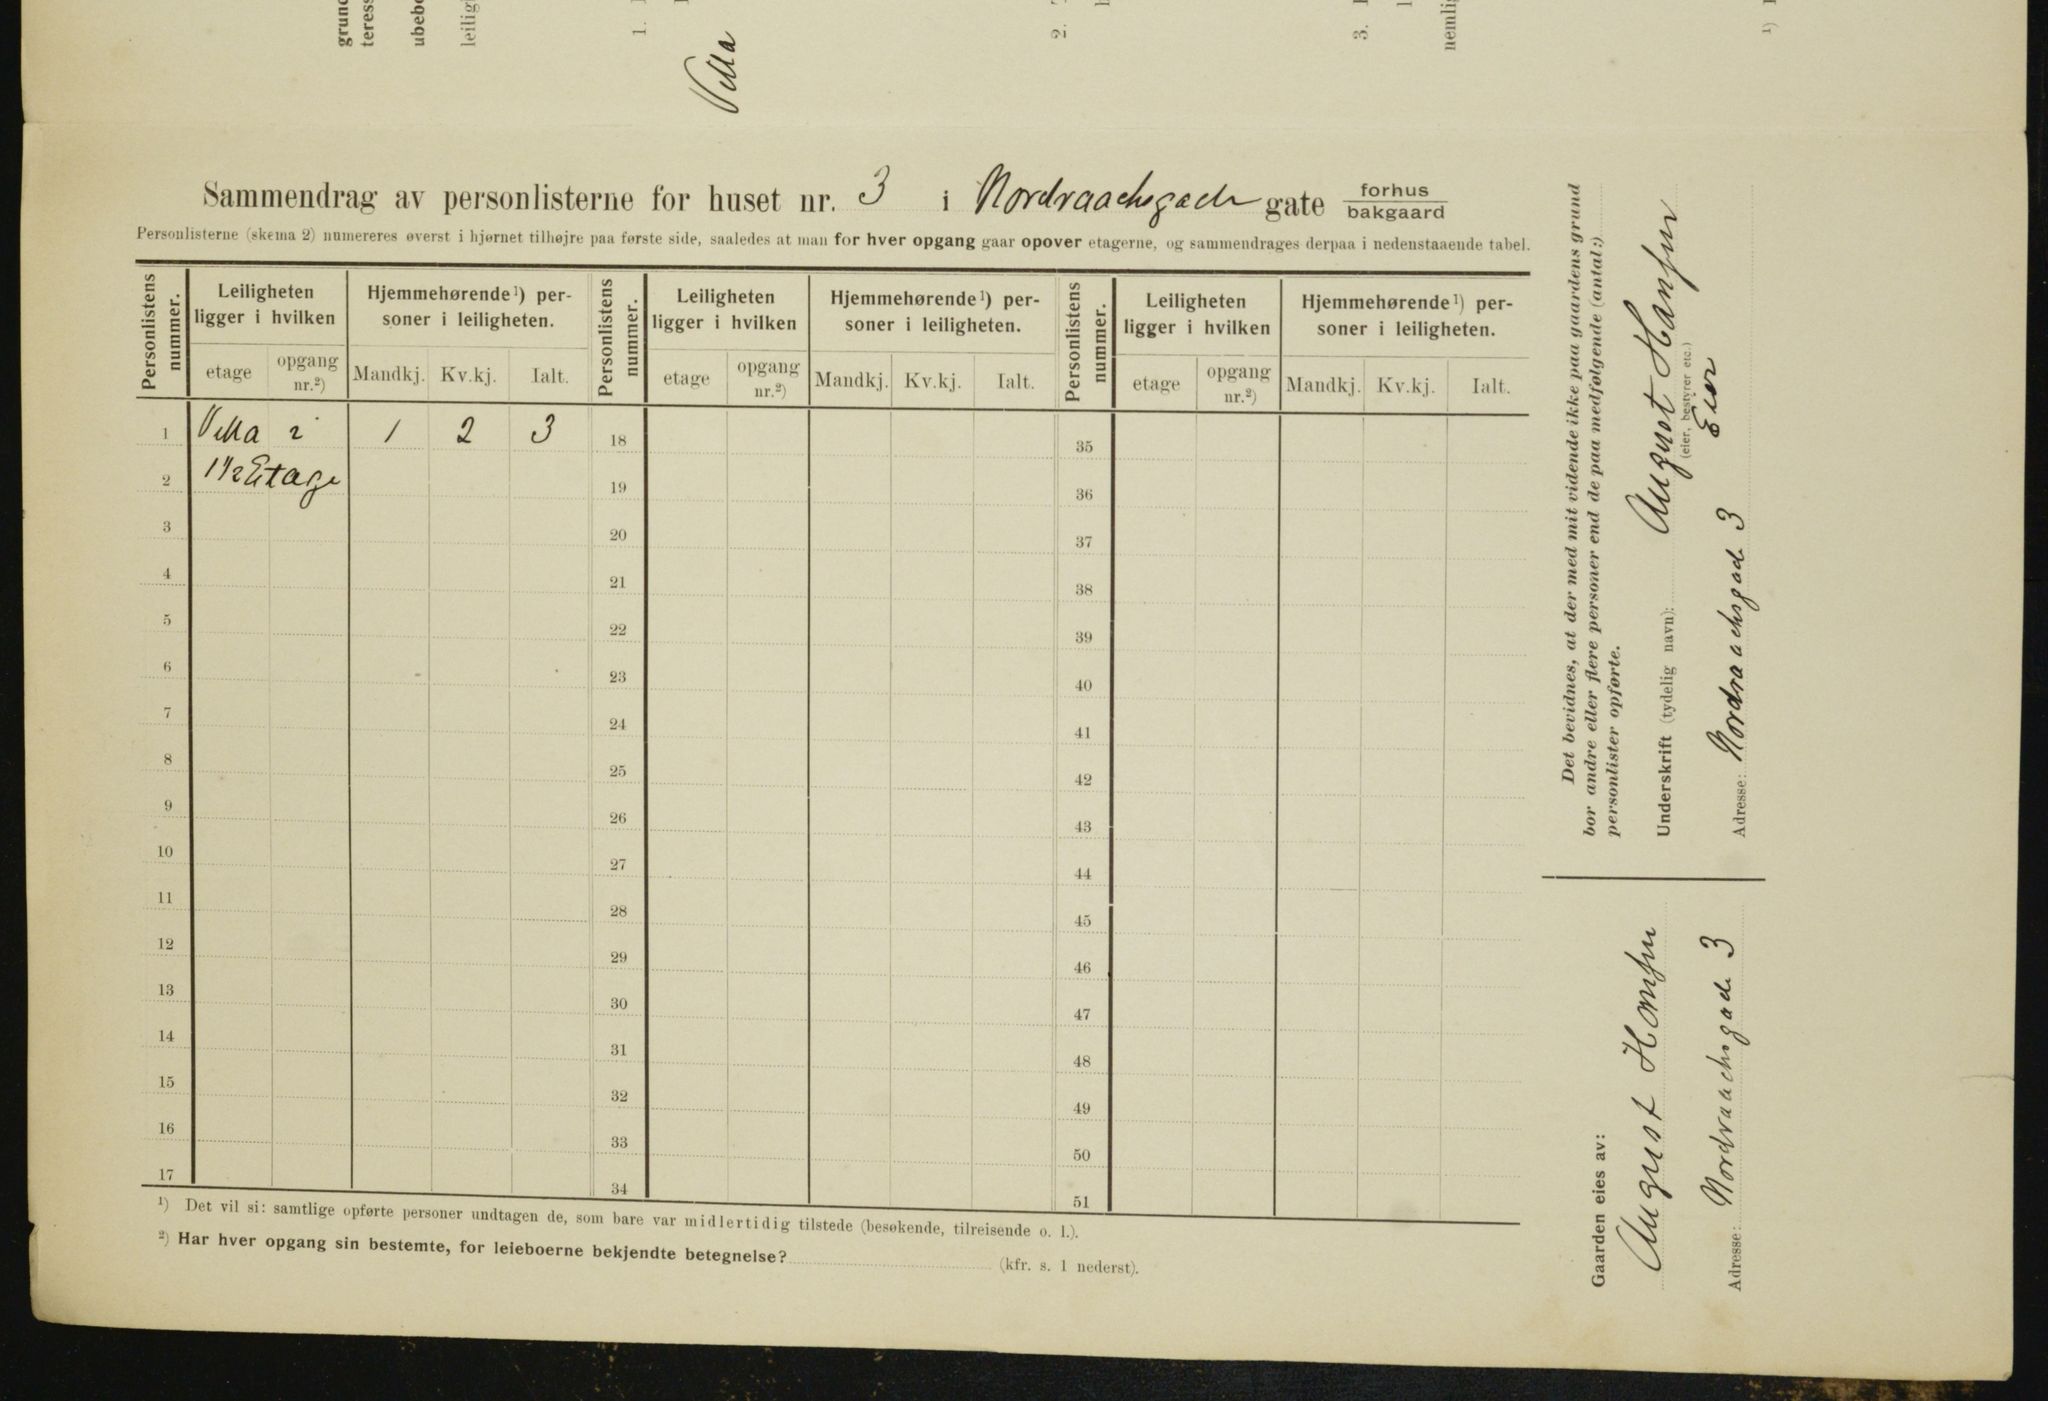 grund
teress
ubebo
leilig
1.
Villa
2.
3.
nemlig
1)
Sammendrag av personlisterne for huset nr. 3 i Nordraachsgade gate forhus
bakgaard
Personlisterne (skema 2) numereres øverst i hjørnet tilhøjre paa første side, saaledes at man for hver opgang gaar opover etagerne, og sammendrages derpaa i nedenstaaende tabel.
Personlistens nummer. Leiligheten ligger i hvilken Hjemmehørende¹) personer i leiligheten. Personlistens nummer. Leiligheten ligger i hvilken Hjemmehørende¹) personer i leiligheten. Personlistens nummer. Leiligheten ligger i hvilken Hjemmehørende¹) personer i leiligheten.
etage opgang nr.²) Mandkj. Kv.kj. Ialt. etage opgang nr.²) Mandkj. Kv.kj. Ialt. etage opgang nr.²) Mandkj. Kv.kj. Ialt.
1 Villa i 1 2 3 18 35
2 1 1/2 Etage 19 36
3 20 37
4 21 38
5 22 39
6 23 40
7 24 41
8 25 42
9 26 43
10 27 44
11 28 45
12 29 46
13 30 47
14 31 48
15 32 49
16 33 50
17 34 51
¹) Det vil si: samtlige opførte personer undtagen de, som bare var midlertidig tilstede (besøkende, tilreisende o. l.).
²) Har hver opgang sin bestemte, for leieboerne bekjendte betegnelse? (kfr. s. 1 nederst).
Det bevidnes, at der med mit vidende ikke paa gaardens grund
bor andre eller flere personer end de paa medfølgende (antal:)
personlister opførte.
Underskrift (tydelig navn): August Hansen
(eier, bestyrer etc.)
Eier
Adresse: Nordraachsgade 3
Gaarden eies av:
August Hansen
Adresse: Nordraachsgade 3